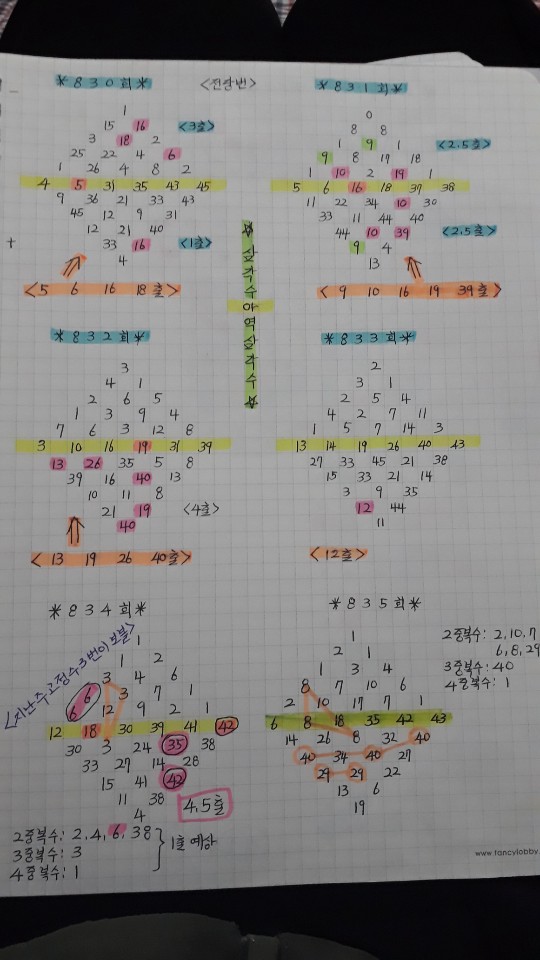 *830회*
<전람번>
1
15 16
<3출>
3 18 2
25 22 4 6
1 26 4 8 2
4 5 31 35 43 45
9 36 21 33 43
45 12 9 31
12 21 40
+
33 16
<1출>
4
<5 6 16 18출>
*831회*
0
8 8
1 9 1
<2,5출>
9 8 19 18
1 10 2 19 1
5 6 16 18 37 38
11 22 34 10 30
33 11 44 40
44 10 39
<2,5출>
9 4
13
<9 10 16 19 39출>
☆삼각수와역삼각수☆
*832회*
3
4 1
2 6 5
1 3 9 4
7 6 3 12 8
3 10 16 19 31 39
13 26 35 5 8
39 16 40 13
10 11 8
21 19
<4출>
40
<13 19 26 40출>
*833회*
2
3 1
2 5 4
4 2 7 11
1 5 7 14 3
13 14 19 26 40 43
27 33 45 21 38
15 33 21 14
3 9 35
12 44
11
<12출>
*834회*
<지난주고정수3번이보볼>
1
1 2
3 4 6
6 3 7 1
6 12 9 2 1
12 18 30 39 41 42
30 3 24 35 38
33 27 14 28
15 41 42
11 38
4
4,5출
2중복수: 2,4,6,38
3중복수: 3
4중복수: 1
1출 예상
*835회*
1
2 1
1 3 4
8 7 10 6
2 10 17 7 1
6 8 18 35 42 43
14 26 8 32 40
40 34 40 27
29 29 22
13 6
19
2중복수: 2,10,7
6,8,29
3중복수: 40
4중복수: 1
www.fancylobby.